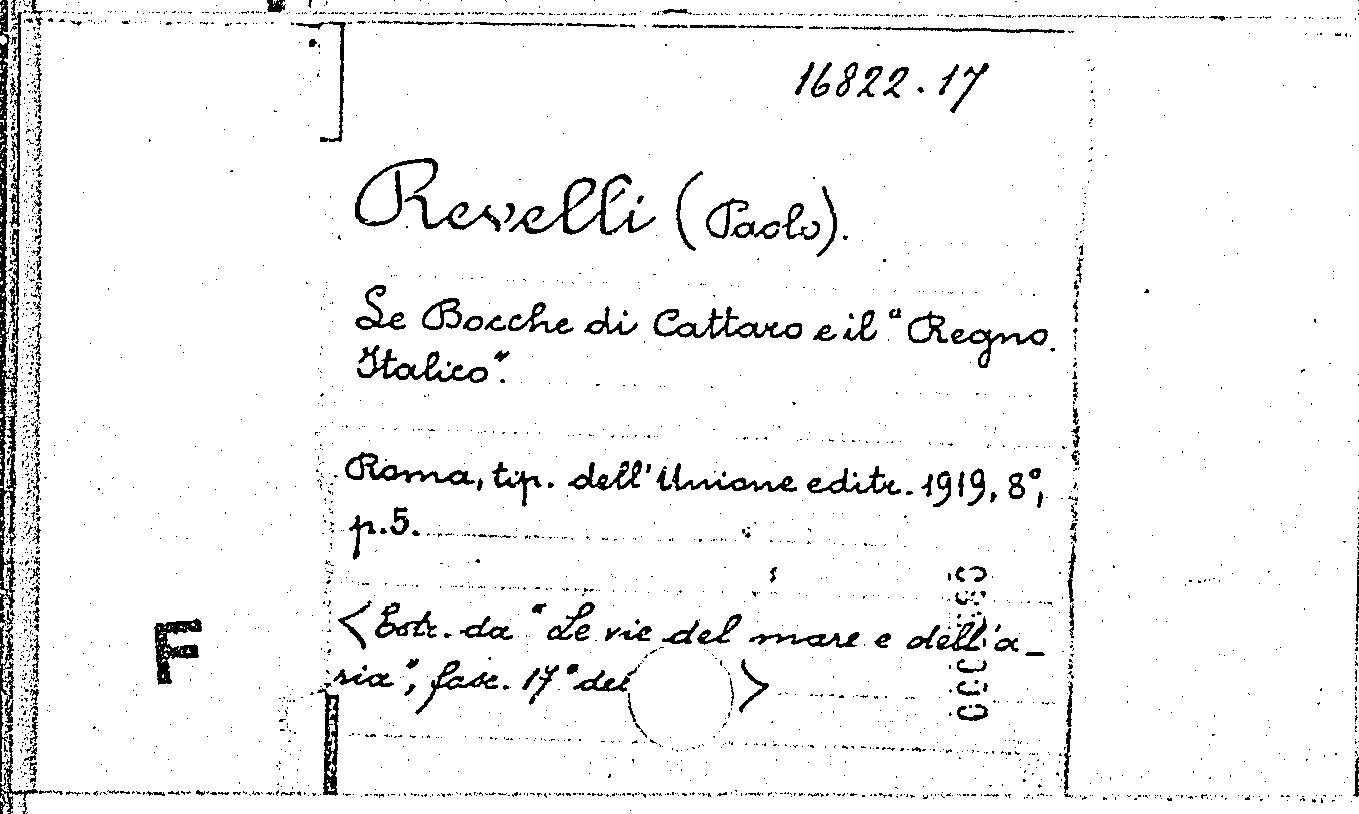 16822.17
Revelli (Paolo).
Le Bocche di Cattaro e il "Regno
Italico".
Roma, tip. dell'Unione editr. 1919, 8°,
p. 5.
<Estr. da "Le vie del mare e dell'a-
ria", fasc. 17° del >
F